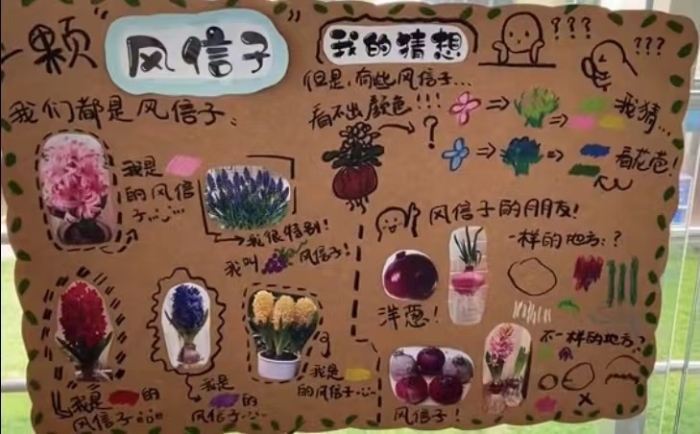 一颗"风信子"
我的猜想
???
???
我们都是风信子:
但是,有些风信子...
看不出颜色!!!
?
我猜...
看花苞!
我是
的风信
子
我很特别!
我叫 风信子!
风信子的朋友!
一样的地方:?
洋葱!
不一样的地方?
我是 的
风信子
我是 的
风信子
我是
的风信子
风信子!